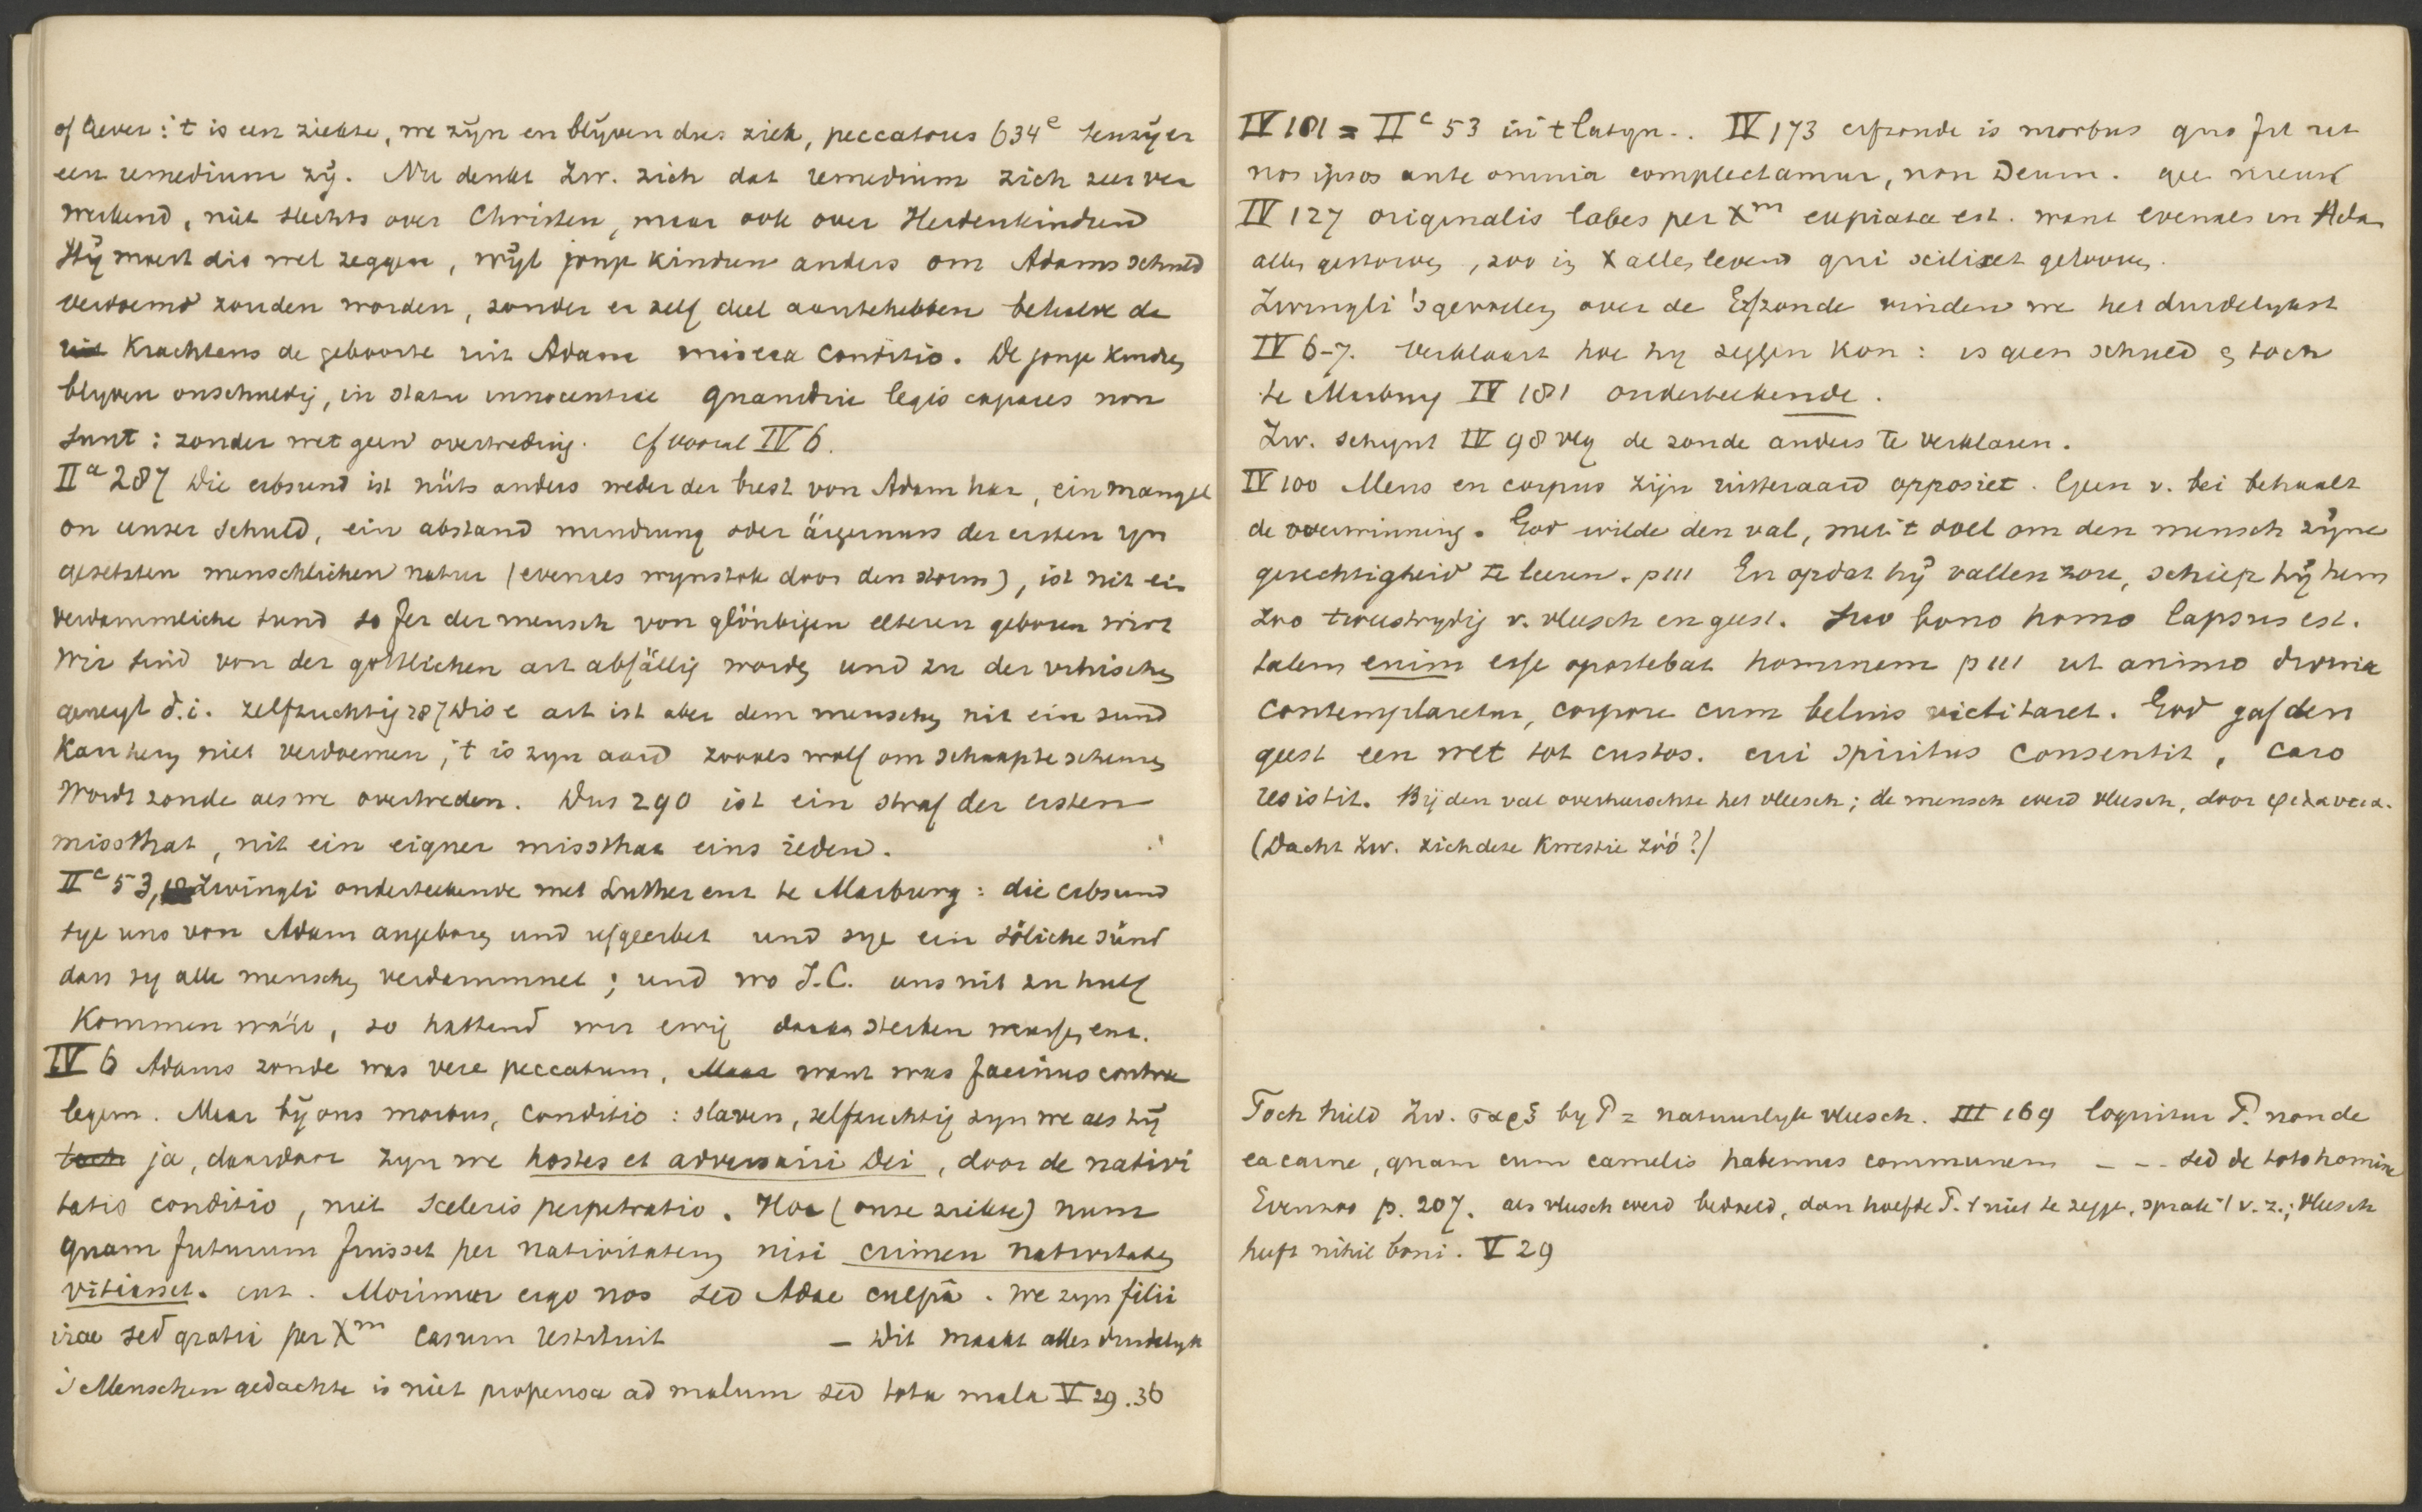 of liever: 't is een ziekte, we zijn en blijven dus ziek, peccatores 634e tenzij er
een remedium zij. Nu denkt Zw. zich dat remedium zich zeer ver
werkend, niet slechts over Christen, maar ook over Heidenkindren
Hij moest dis wel zeggen, wijl jonge kindren anders om Adams schuld
verdoemd zouden worden, zonder er zelf deel aantehebben behalve de
krachtens de geboorte uit Adam misera conditio. De jonge kindren
blyven onschuldig, in statu innocentiae quamdiu legis capaces non
sunt: zonder wet geen overtreding. Cf vooral IV 6.
IIa 287 Die erbsund ist nüts anders weder der brest von Adam har, ein mangel
on unser schuld, ein abstand mindrung oder ärgernuss der ersten yn
gesetzten menschlichen natur (evenals wynstok door den storm), ist nit ein
verdammliche sund so fer der mensch von glöubigen elteren geboren wirt
Wir sind von der gottlichen art abfällig worden und zu der vihischen
geneygt d.i. zelfzuchtig 287 Dise art ist aber dem menschen nit ein sund
Kan hem niet verdoemen, 't is zyn aard zooals wolf om schaap te scheuren
Wordt zonde als we overtreden. Dus 290 ist ein straf der ersten
missthat, nit ein eigner missthat eins ieden.
IIc 53, Zwingli onderteekende met Luther enz te Marburg: die erbsund
sye uns von Adam angeboren und ufgeerbet und sye ein söliche sünd
dass sy alle menschen verdammnet; und wo J.C. uns nit zu hulf
Kommen wäre, so hattend wir ewig daran sterben muessen enz.
IV 6 Adams zonde was vere peccatum, Maar want was facinus contra
legem. Maar bij ons morbus, conditio: slaven, zelfzuchtig zyn we als hij
toch ja, daardoor zyn we hostes et adversarii Dei, door de nativi
tatis conditio, niet sceleris perpetratio. Hoc (onze ziekte) num
quam futurum fuisset per nativitatem nisi crimen nativitatem
vitiasset. enz. Morimur ergo nos sed Adae culpâ. We zyn filii
irae sed gratia per Xm casum restituit – Dit maakt alles duidelyk
's Menschen gedachte is niet propensa ad malum sed tota mala V 29.36
IV 181 = IIc 53 in 't Latyn.. IV 173 erfzonde is morbus quo fit ut
nos ipsos ante omnia complectamur, non Deum.
IV 127 originalis labes per Xm expiata est. want evenals in Adam
allen gestorven, zoo in X allen levend qui scilicet gelooven.
Zwingli's gevoelen over de Erfzonde vinden we het duidelykst
IV 6-7. Verklaart hoe hy zeggen kon: is geen schuld en toch
te Marburg IV 181 onderteekende.
Zw. schynt IV 98 vlg de zonde anders te verklaren.
IV 100 Mens en corpus zijn uitteraard opposiet. Geen v. bei behaalt
de overwinning. God wilde den val, met 't doel om den mensch zijne
gerechtigheid te leeren. p 111 En opdat hij vallen zou, schiep hij hem
zoo tweestrydig v. vleesch en geest. Suo bono homo lapsus est.
talem enim esse oportebat hominem p 111 ut animo divina
contemplaretur, corpore cum beluis victitaret. God gaf den
geest een wet tot custos. cui spiritus consentit, caro
resistit. Bij den val overheerschte het vleesch; de mensch werd vleesch, door φιλαυτια.
(Dacht Zw. zich deze kwestie zóó?)
Toch hield Zw. σαρξ by P = natuurlyk vleesch. III 169 loquitur P. non de
ea carne, quam cum camelis habemus communem – – – sed de toto homine
Evenzoo p. 207. als vleesch werd bedoeld, dan hoefde P. 't niet te zegge, sprak 't v. z.; vleesch
heeft nihil boni. V 29